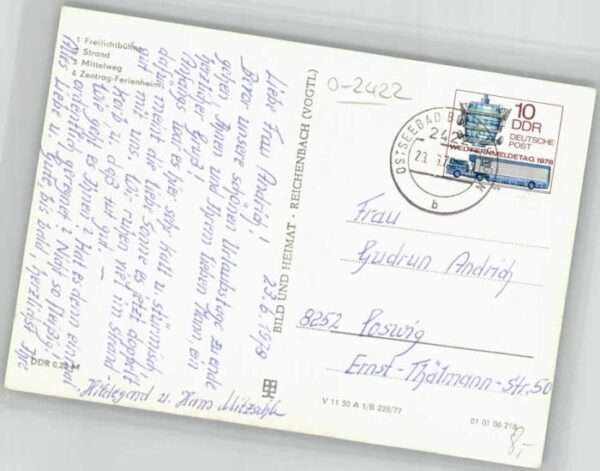 1 Freilichtbühne
2 Strand
3 Mittelweg
4 Zentrag-Ferienheim
Liebe Frau Andrich!
23.6.1978
Bevor unsere schönen Urlaubstage zu Ende
gehen Ihnen und Ihrem lieben Mann, ein
herzlicher Gruß!
Anfangs war es hier sehr kalt u. stürmisch
dafür meint die liebe Sonne es jetzt doppelt
gut mit uns. Wir ruhen viel im Strand-
korb u. das tut gut.
Wie geht es Ihnen? Hat es denn einmal
ordentlich geregnet?
Alles Liebe u. Gute, bis bald, herzlichst Ihre
Hildegard u. Hans
DDR 0,20 M
BILD UND HEIMAT · REICHENBACH (VOGTL.)
0-2422
OSTSEEBAD
242
b
10
DDR
DEUTSCHE
POST
WELTFERNMELDETAG 1978
Frau
Gudrun Andrich
8252 Coswig
Ernst-Thälmann-Str. 50
V 11 50 A 1/B 228/77
01 01 06 218
8,-